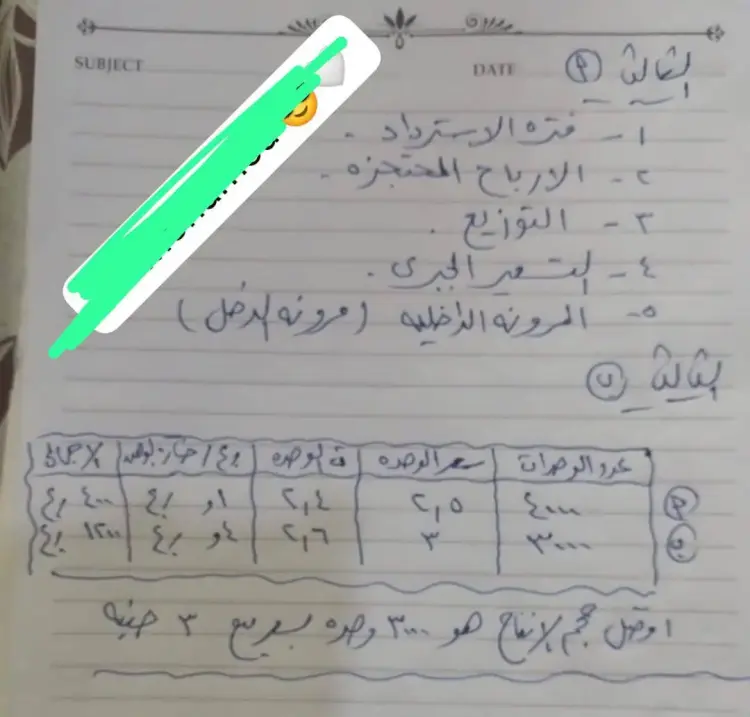 SUBJECT
DATE
الثالث (P)
١- فتره الاسترداد .
٢- الارباح المحتجزه .
٣- التوزيع .
٤- التسعير الجبرى .
٥- المرونه الداخليه (مرونه الدخل)
الثالث (ب)
عدد الوحدات سعر الوحده ت الوحده ربح / خسارة الوحده الاجمالى
(P) ٤٠٠٠ ٢,٥ ٢,٤ ,١ و ربح ٤٠٠ ربح
(ب) ٣٠٠٠ ٣ ٢,٦ ,٤ و ربح ١٢٠٠ ربح
افضل حجم الانتاج هو ٣٠٠٠ وحده بسعر بيع ٣ جنيه